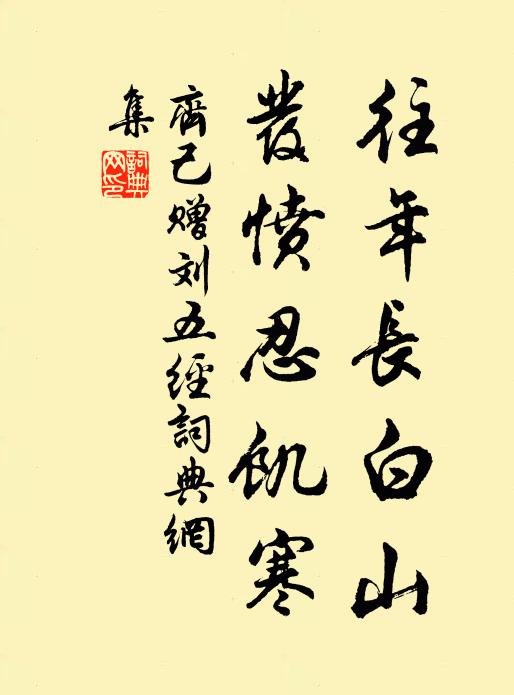 往年長白山
發憤忍飢寒
齊己贈刘五經詞典網
集
詞典
网印